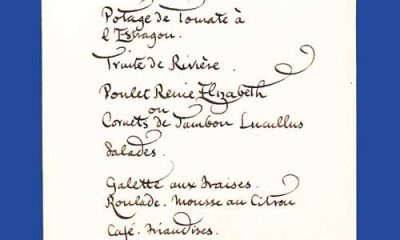 Potage de Tomate à
l'Estragon.
Truite de Rivière.
Poulet Reine Elizabeth
ou
Cornets de Jambon Lucullus
Salades.
Galette aux Fraises.
Roulade. Mousse au Citron
Café. Friandises.